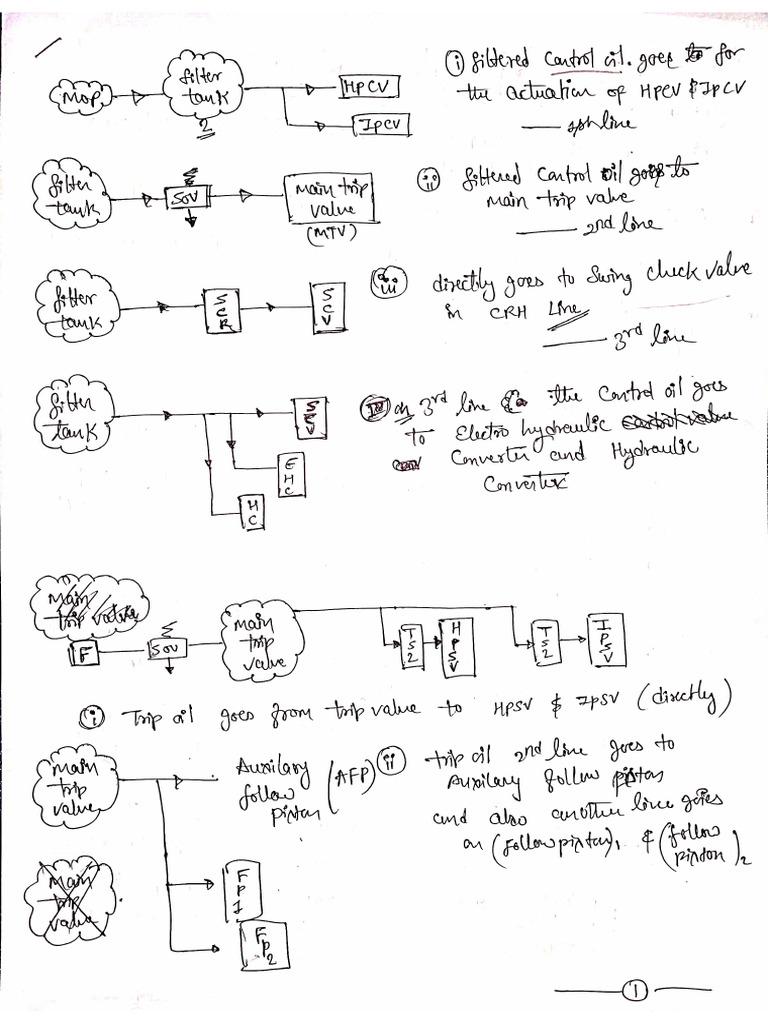 MOP
filter
tank
2
HPCV
IPCV
i filtered Control oil. goes to for
the actuation of HPCV & IPCV
filter
tank
SOV
main trip
valve
(MTV)
ii filtered Control oil goes to
main trip valve
2nd line
filter
tank
S
C
R
S
C
V
iii directly goes to Swing check valve
in CRH Line
3rd line
filter
tank
S
C
V
E
H
C
H
C
on 3rd line the Control oil goes
to Electro hydraulic control valve
Converter and Hydraulic
Converter
main
trip valve
F
SOV
main
trip
valve
T
S
2
H
P
S
V
T
S
2
I
P
S
V
i Trip oil goes from trip valve to HPSV & IPSV (directly)
main
trip
valve
Auxilary
follow
piston
(AFP)
ii trip oil 2nd line goes to
Auxilary follow piston
and also another line goes
on (follow piston)1 & (follow
piston)2
F
P
1
F
P2
main
trip
valve
1